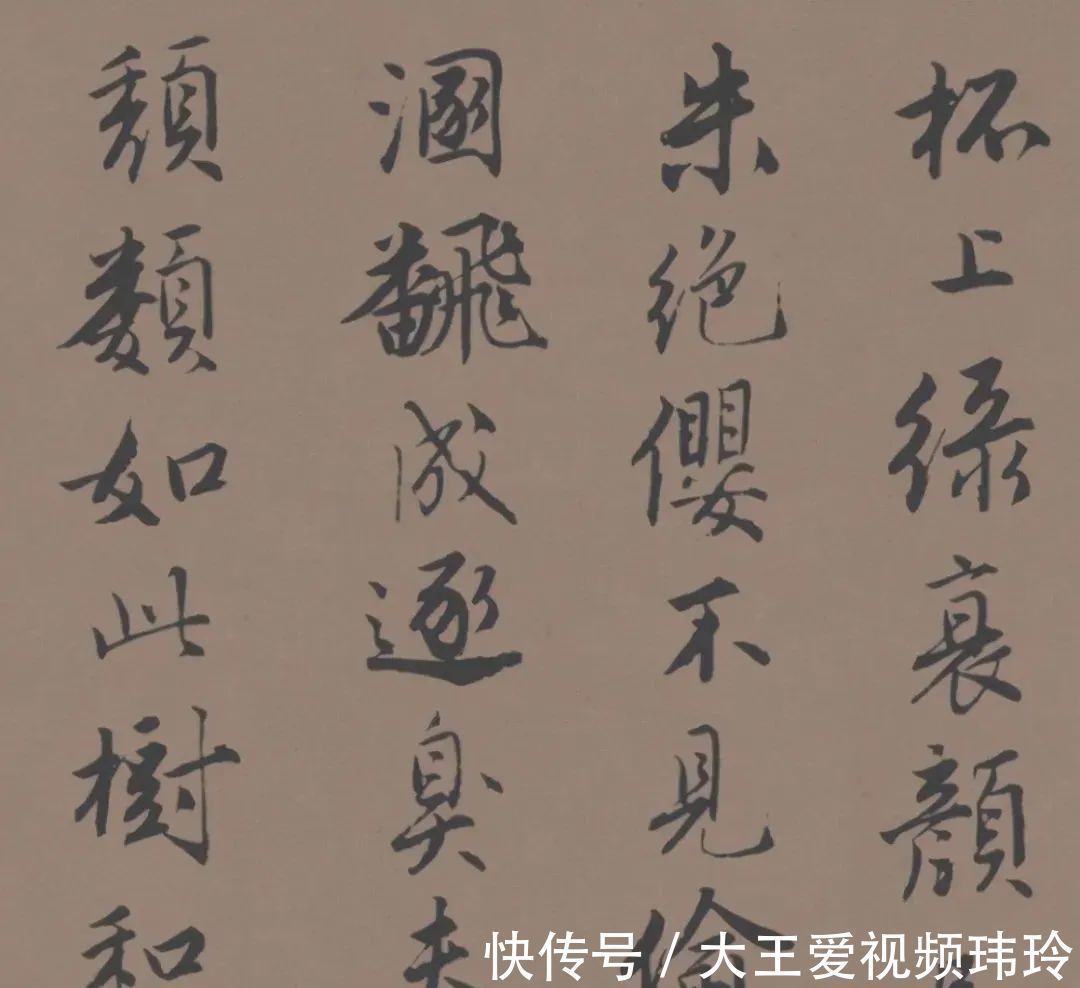 杯上綠衰顏
朱絕纓不見
溷飜成逐臭夫
頹類如此樹和
快传号 / 大王爱视频玮玲